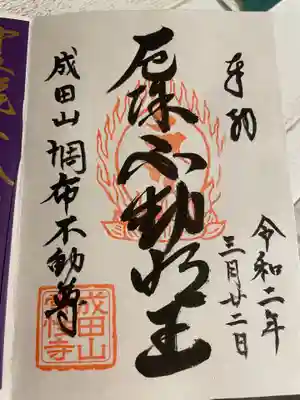 奉納
令和二年
三月廿二日
厄除不動明王
成田山調布不動尊
成田山
寶性寺